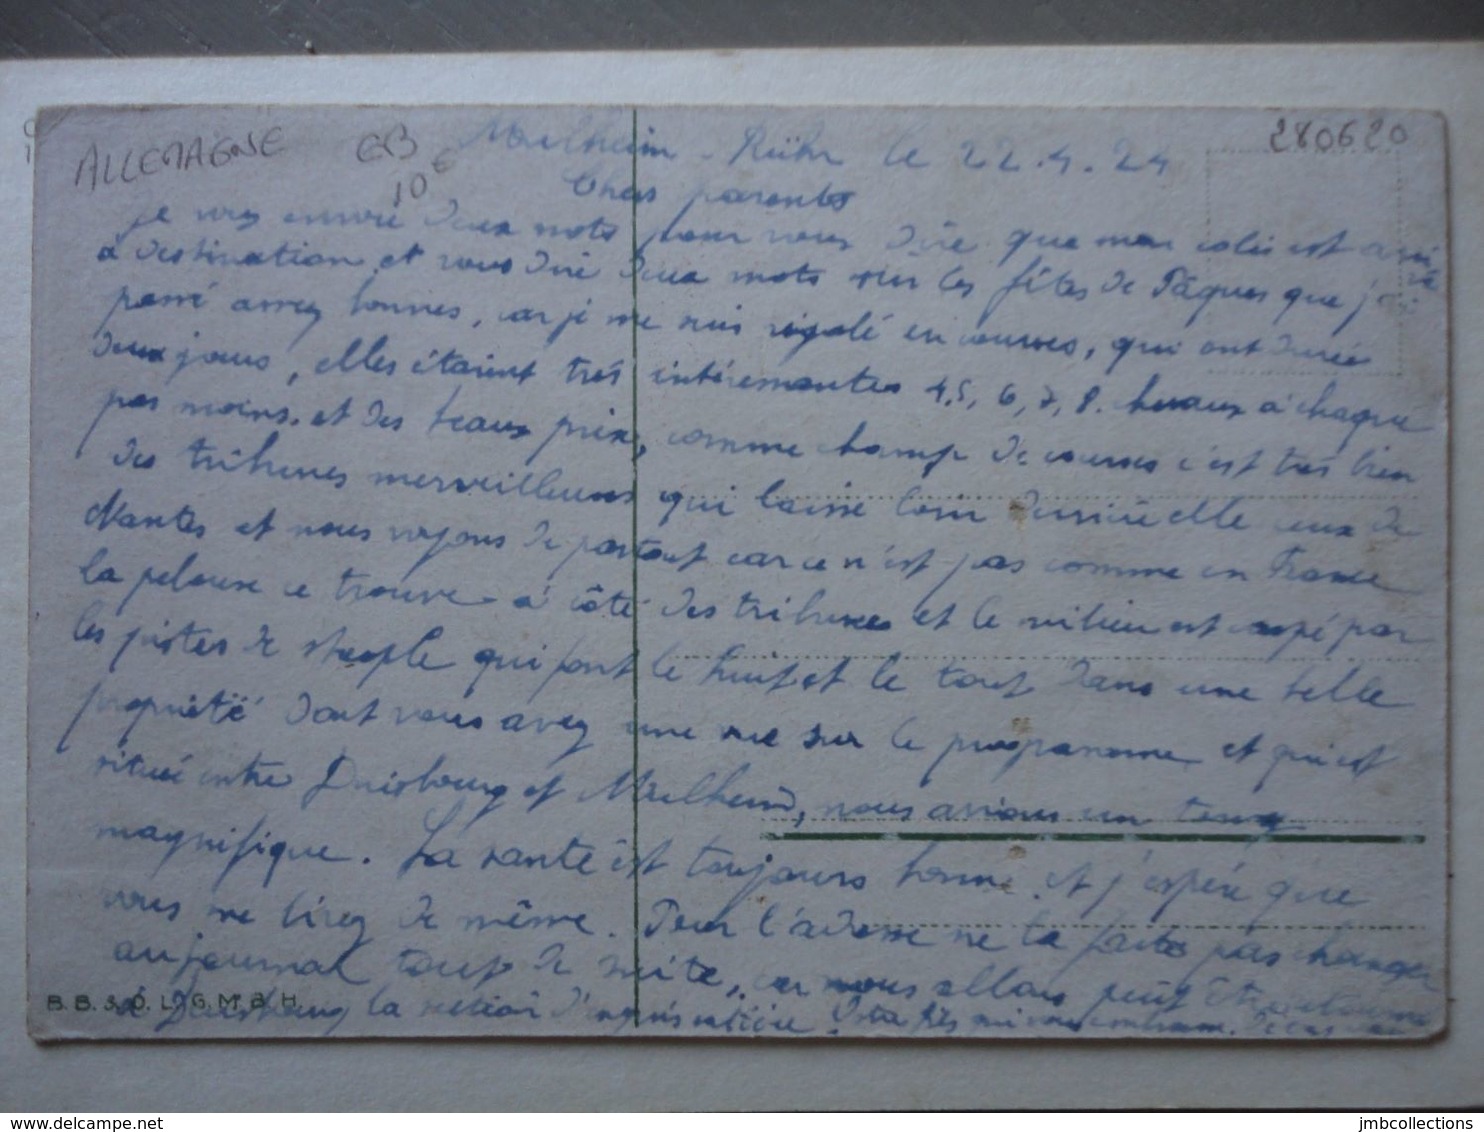 ALLEMAGNE EB 10€ 280620
Mulheim - Rühr le 22.4.24
Chers parents
je vous envoie deux mots pour vous dire que mon colis est arrivé
à destination et vous dire deux mots sur les fêtes de Pâques que j'ai
passé assez bonnes, car je me suis rigolé en courses, qui ont durée
deux jours, elles étaient très intéressantes 4, 5, 6, 7, 8. chevaux à chaque
pas moins. et des beaux prix, comme champ de courses c'est très bien
des tribunes merveilleuses qui laisse loin derrière elle ceux de
Nantes et nous voyons de partout car ce n'est pas comme en France
la pelouse ce trouve à côté des tribunes et le milieu est coupé par
les pistes de steeple qui font le huit et le tout dans une belle
propriété dont vous avez une vue sur le programme et qui est
situé entre Duisbourg et Mulheim, nous avions un temps
magnifique. La santé est toujours bonne et j'espère que
vous me lirez de même. Pour l'adresse ne la faites pas changer
au journal tout de suite, car nous allons peut être retourné
à Duisbourg la section
B.B. & O. L. G.M.B.H.
jmbcollections